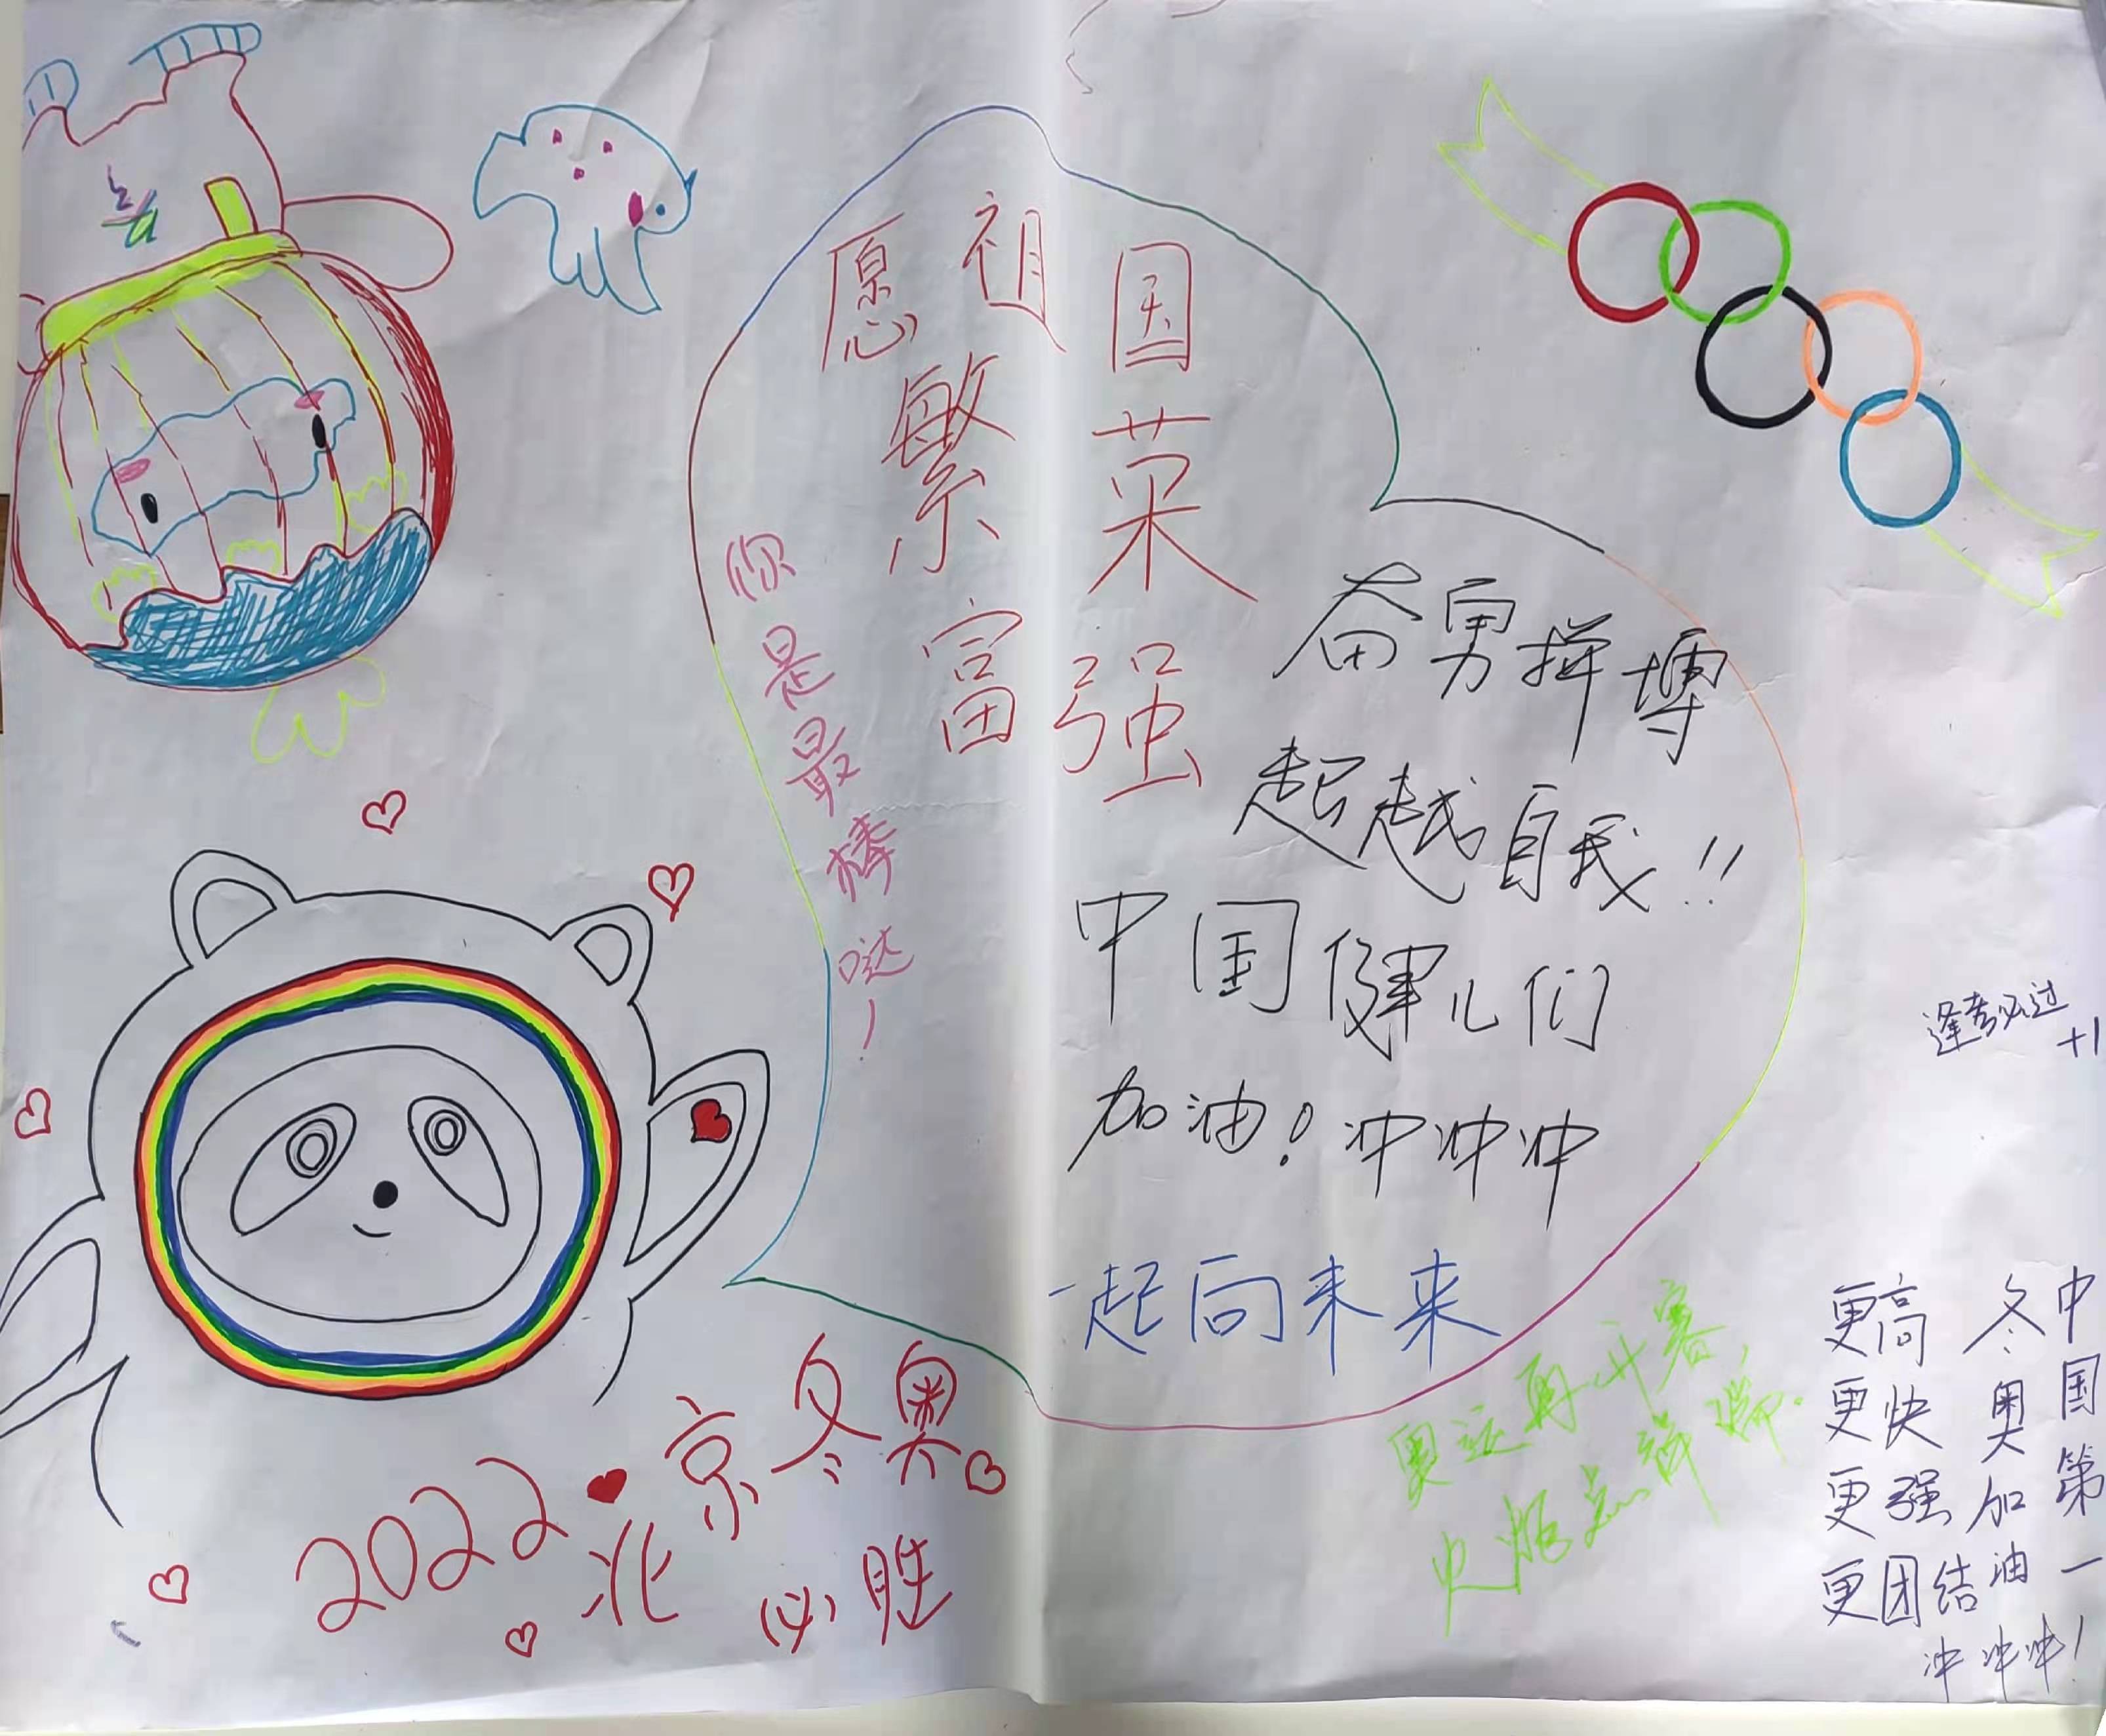 愿祖国
繁荣
富强
你是最棒哒！
奋勇拼搏
超越自我!!
中国健儿们
加油！冲冲冲
一起向未来
逢考必过
+1
2022北京冬奥
必胜
奥运再开赛，
更高
更快
更强
更团结
冬奥加油
中国第一
冲冲冲！